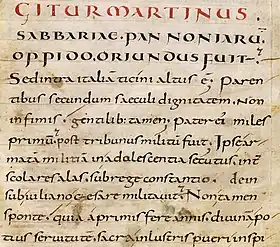 GITUR MARTINUS.
SABBARIAE. PANNONIARŪ
OPPIDO. ORIUNDUS FUIT.
Sed intra italiā ticini altus ē. Paren
tibus secundum saeculi dignitatem. Non
infimis. gentilib; tamen. Pater ei miles
primū. post tribunus militū fuit. Ipse ar
matā militiā in adolescentia secutus. int
scolares alas. sub rege constantio. dein
sub iuliano cesare militavit. Non tamen
sponte. quia a primis fere annis. divina po
tius servitutē. sacra inlustris pueri inspi